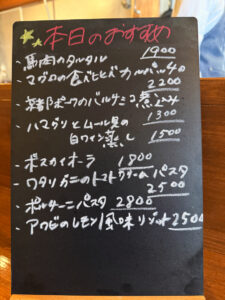 本日のおすすめ
・馬肉のタルタル 1900
・マグロの
2200
・豚ポークのバルサミコ煮込み
1300
・ハマグリとムール貝の
白ワイン蒸し 1500
・ボスカイオーラ 1800
・ワタリガニのトマトクリームパスタ
2500
・ポルチーニパスタ 2800
・アワビのレモン風味リゾット 2500